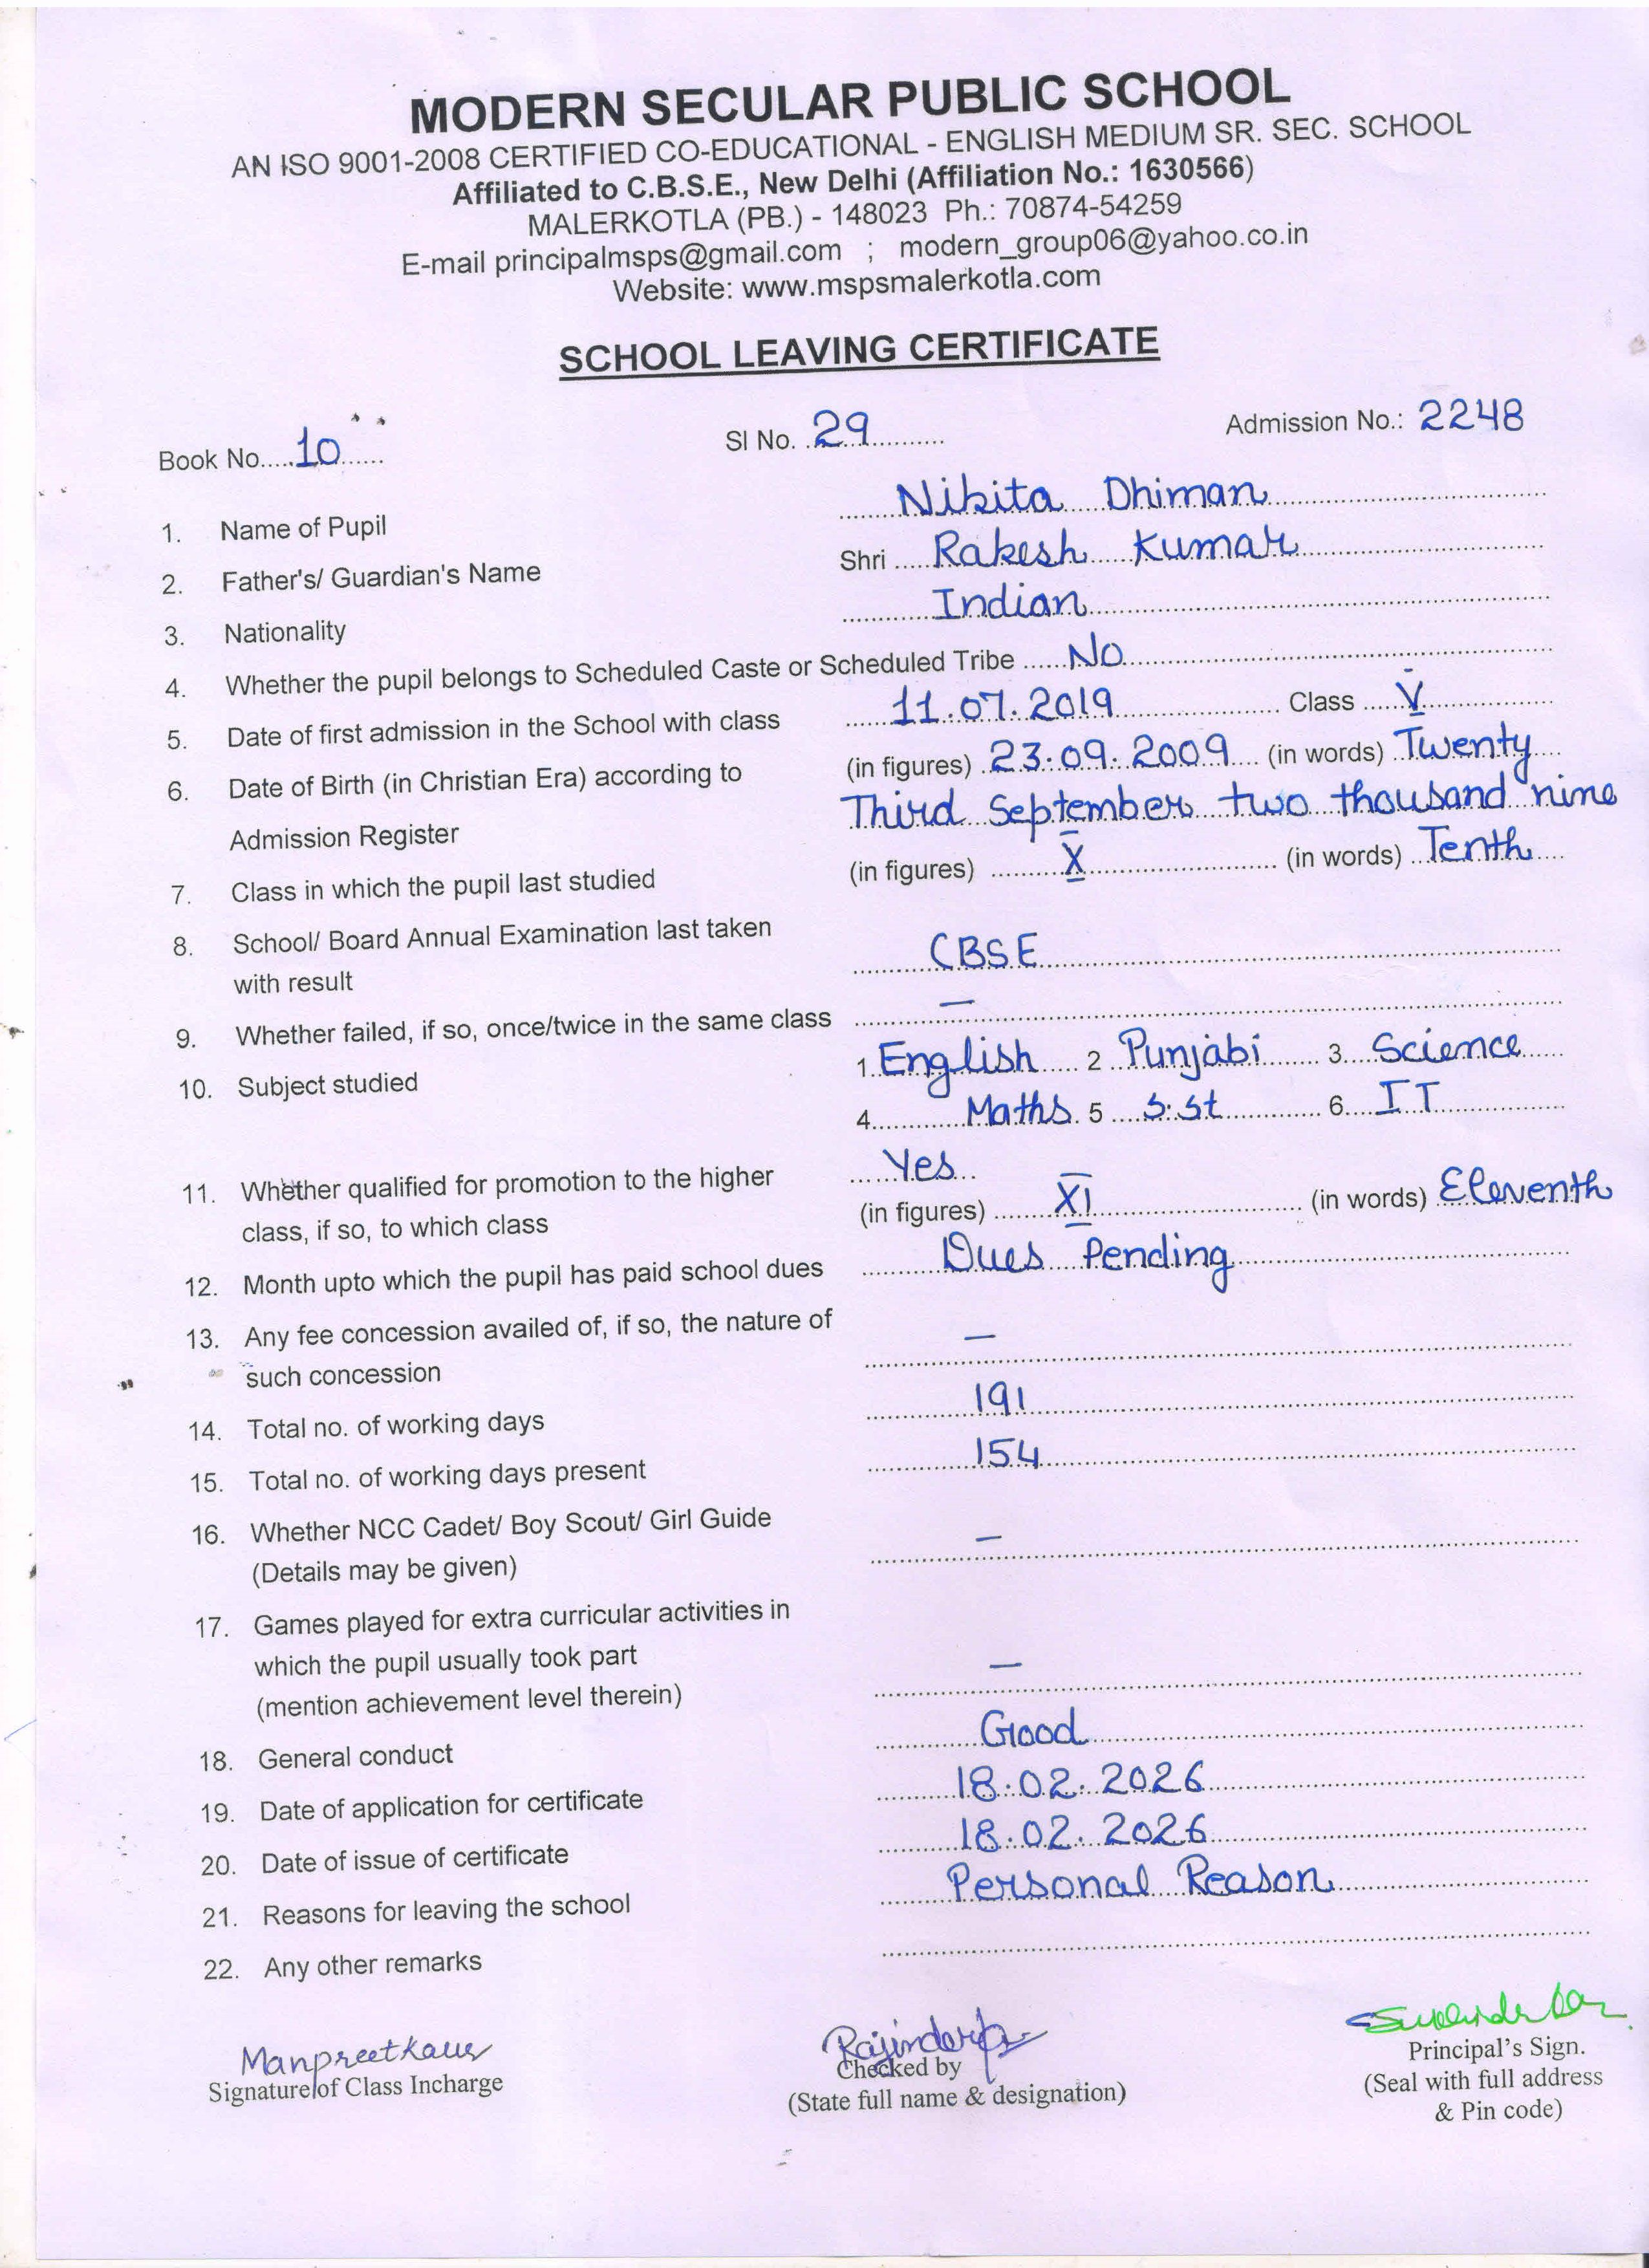 MODERN SECULAR PUBLIC SCHOOL
AN ISO 9001-2008 CERTIFIED CO-EDUCATIONAL - ENGLISH MEDIUM SR. SEC. SCHOOL
Affiliated to C.B.S.E., New Delhi (Affiliation No.: 1630566)
MALERKOTLA (PB.) - 148023 Ph.: 70874-54259
E-mail principalmsps@gmail.com ; modern_group06@yahoo.co.in
Website: www.mspsmalerkotla.com
SCHOOL LEAVING CERTIFICATE
Book No. 10 Sl No. 29 Admission No.: 2248
1. Name of Pupil Nikita Dhiman
2. Father's/ Guardian's Name Shri Rakesh Kumar
3. Nationality Indian
4. Whether the pupil belongs to Scheduled Caste or Scheduled Tribe No
5. Date of first admission in the School with class 11.07.2019 Class V
6. Date of Birth (in Christian Era) according to (in figures) 23.09.2009 (in words) Twenty
Admission Register Third September two thousand nine
7. Class in which the pupil last studied (in figures) X (in words) Tenth
8. School/ Board Annual Examination last taken
with result CBSE
9. Whether failed, if so, once/twice in the same class —
10. Subject studied 1. English 2 Punjabi 3. Science
4. Maths 5 S.St 6. IT
11. Whether qualified for promotion to the higher Yes
class, if so, to which class (in figures) XI (in words) Eleventh
12. Month upto which the pupil has paid school dues Dues Pending
13. Any fee concession availed of, if so, the nature of
such concession —
14. Total no. of working days 191
15. Total no. of working days present 154
16. Whether NCC Cadet/ Boy Scout/ Girl Guide
(Details may be given) —
17. Games played for extra curricular activities in
which the pupil usually took part
(mention achievement level therein) —
18. General conduct Good
19. Date of application for certificate 18.02.2026
20. Date of issue of certificate 18.02.2026
21. Reasons for leaving the school Personal Reason
22. Any other remarks
Manpreet Kaur
Signature of Class Incharge
Checked by
(State full name & designation)
Principal's Sign.
(Seal with full address
& Pin code)